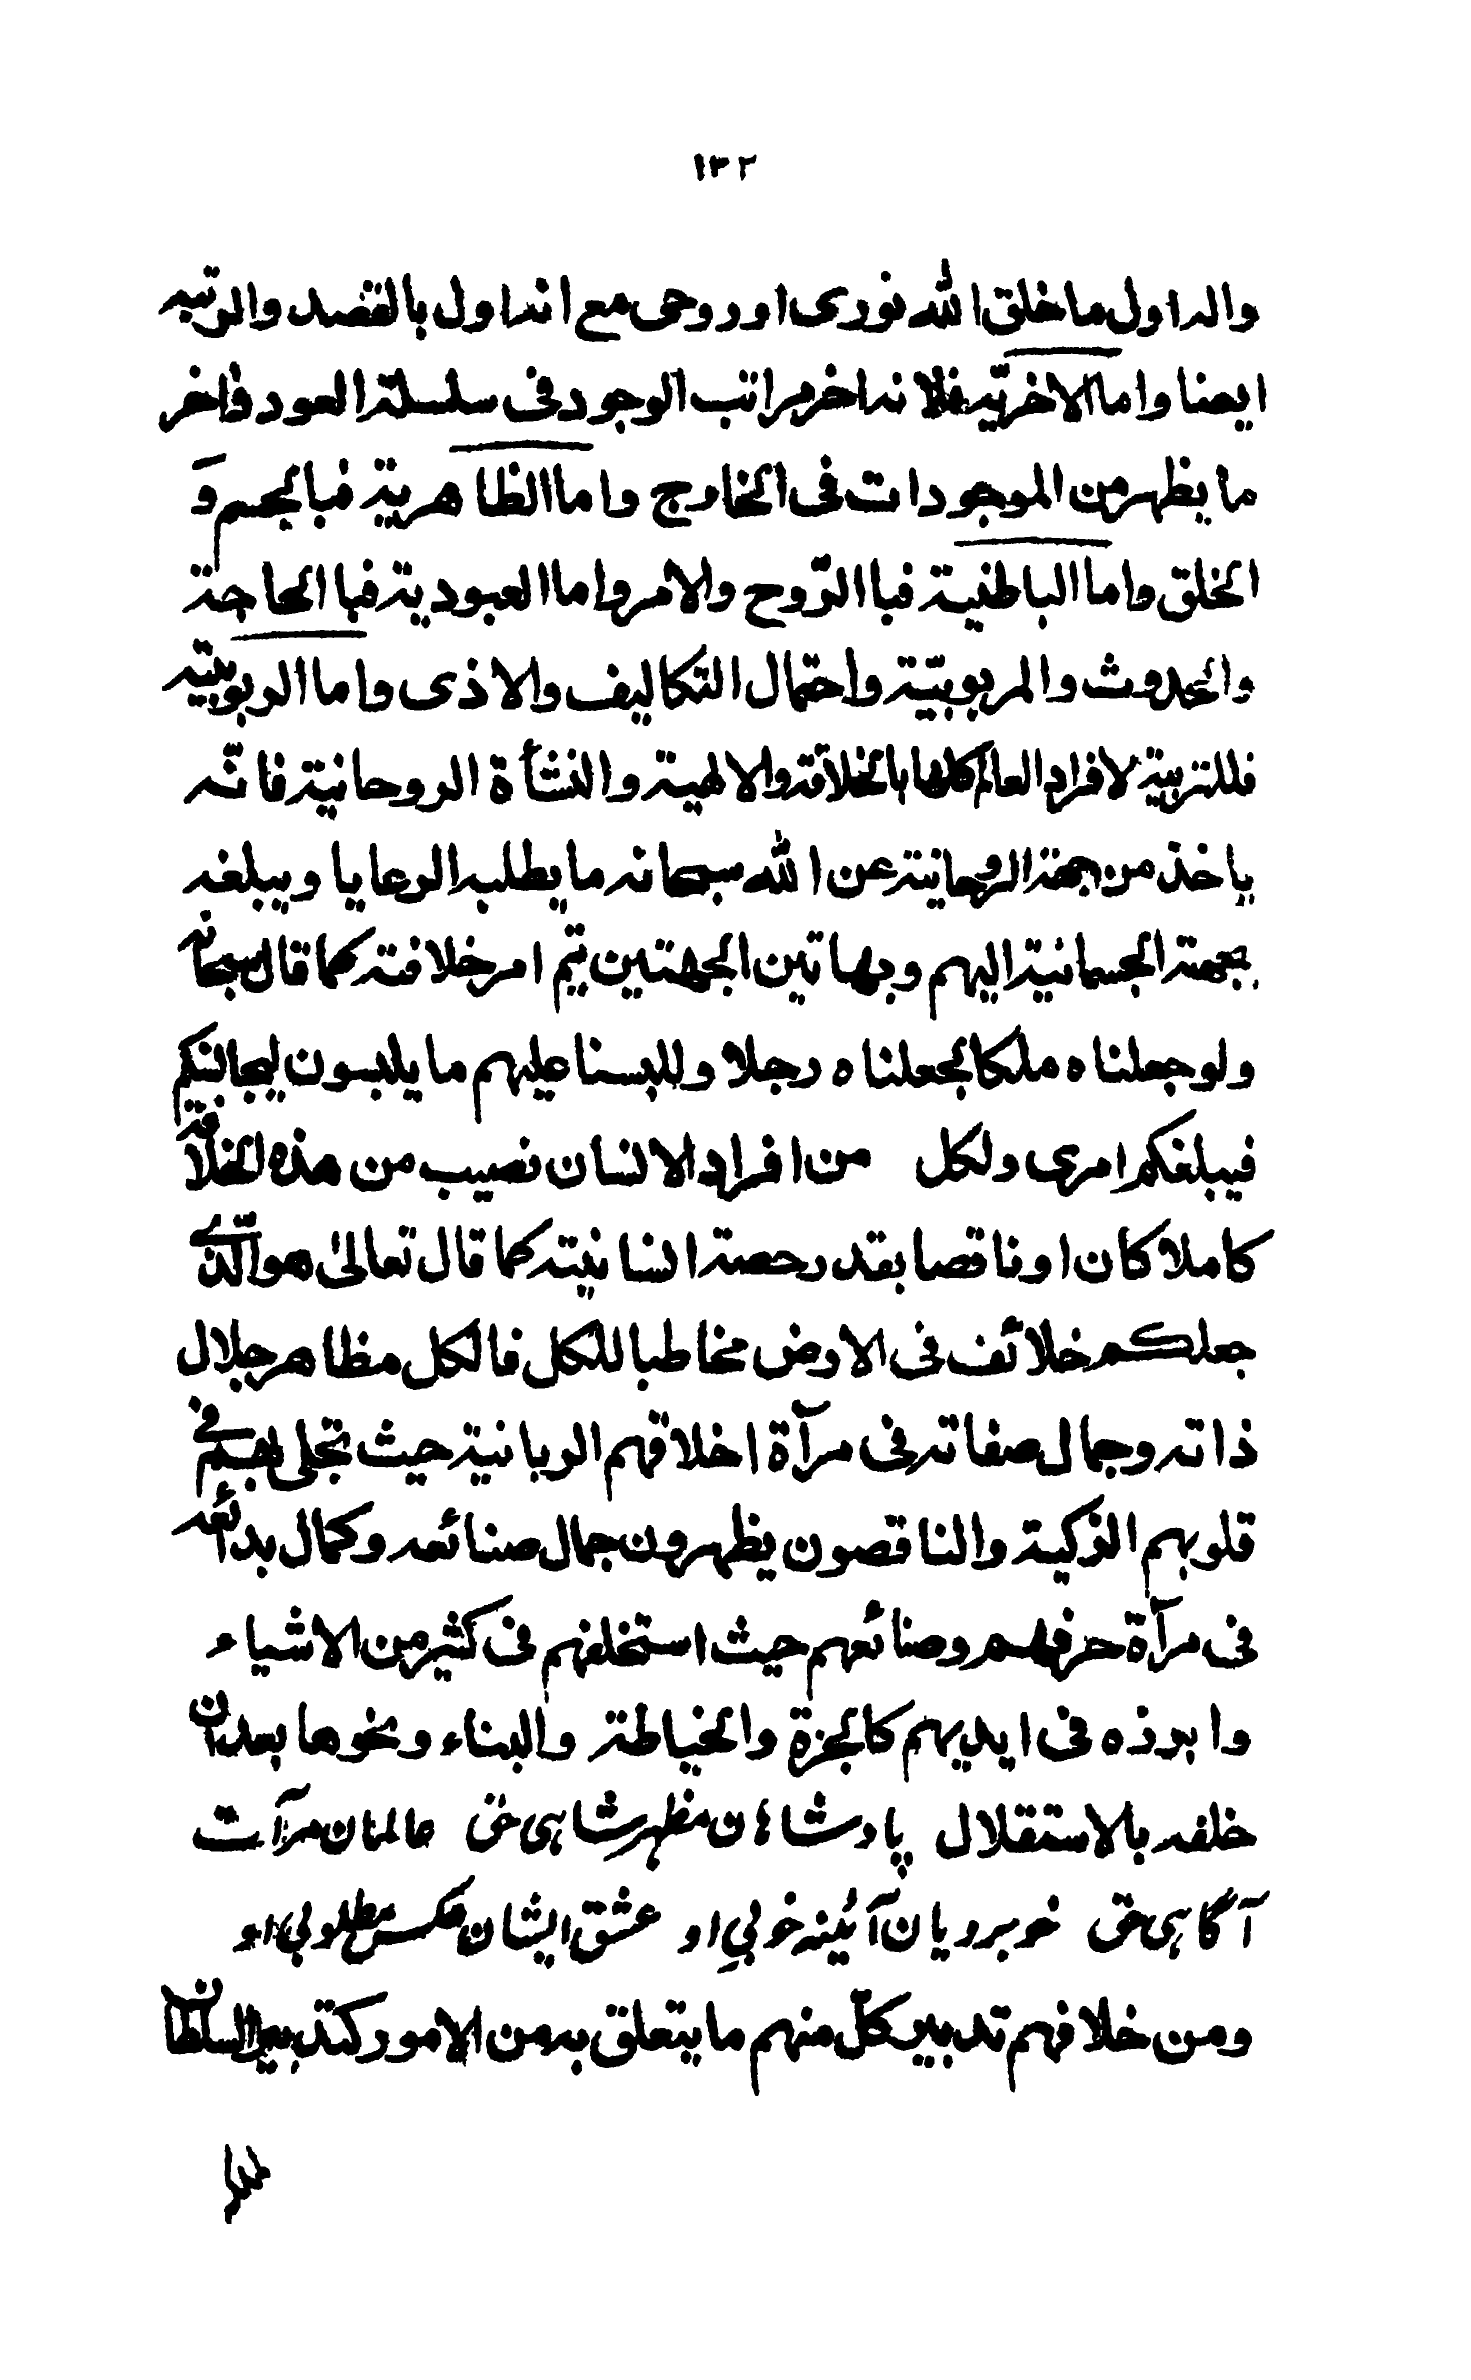 ١٣٢
والہ اول ما خلق الله نوری او روحی مع انہ اول بالقصد والرتبہ
ایضا واما الاخریّة فلانہ اخر مراتب الوجود فی سلسلة العود واخر
ما یظهر من الموجودات فی الخارج واما الظاهریة فبالجسم وَ
الخلق واما الباطنیة فبالرّوح والامر واما العبودیة فبالحاجة
والحدوث والمربوبیّة واحتمال التکالیف والاذی واما الربوبیّة
فللتربیة لافراد العالم کلها بالخلافة والالهیة والنشأة الروحانیة فانّہ
یاخذ من جهة الروحانیة عن الله سبحانہ ما یطلبہ الرعایا ویبلغہ
بجهة الجسمانیة الیهم وبهاتین الجهتین یتم امر خلافتہ کما قال سبحانہ
ولو جعلناه ملکا لجعلناه رجلا وللبسنا علیهم ما یلبسون لیجانسکم
فیبلغکم امری ولکل من افراد الانسان نصیب من هذه الخلافة
کاملا کان او ناقصا بقدر حصة انسانیتہ کما قال تعالیٰ هو الّذی
جعلکم خلائف فی الارض مخاطبا للکل فالکل مظاهر جلال
ذاتہ وجمال صفاتہ فی مرآة اخلاقهم الربانیة حیث تجلی لهم فی
قلوبهم الزکیة والناقصون یظهرون جمال صنائعہ وکمال بدائعہ
فی مرآة حرفهم وصنائعهم حیث استخلفهم فی کثیر من الاشیاء
وابرزه فی ایدیهم کالجزة والخیاطة والبناء ونحوها بعد ان
خلفہ بالاستقلال پادشاهان مظهر شاهی حق عالمان مرآت
آگاهی حق خوبرویان آئینہ خوبیِ او عشق ایشان عکس مطلوبی او
ومن خلافهم تدبیر کلّ منهم ما یتعلق بہ من الامور کتدبیر السلطان